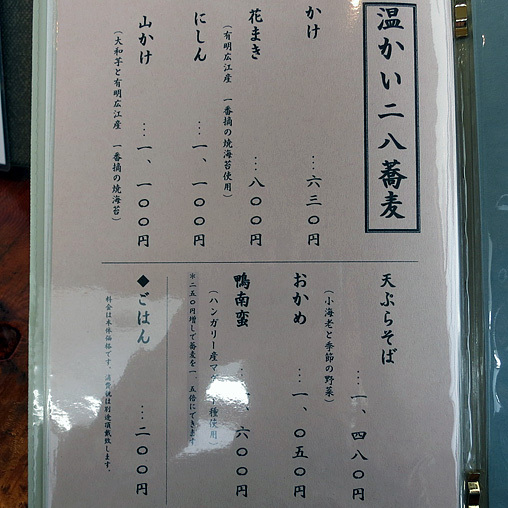 温かい二八蕎麦
かけ …六三〇円
花まき …八〇〇円
(有明広江産 一番摘の焼海苔使用)
にしん …一、一〇〇円
山かけ …一、一〇〇円
(大和芋と有明広江産 一番摘の焼海苔)
天ぷらそば …一、四八〇円
(小海老と季節の野菜)
おかめ …一、〇五〇円
鴨南蛮 六〇〇円
(ハンガリー産マ 種使用)
*二五〇円増しで蕎麦を一、五倍にできます
◆ごはん …二〇〇円
料金は本体価格です。消費税は別途頂戴致します。